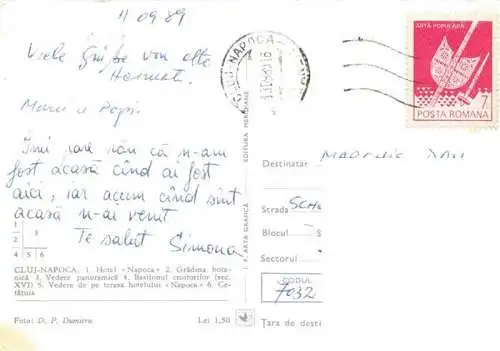 11 09 89
Viele Grüße von alte
Heimat.
Maria u Papi.
Îmi iare rău că n-am
fost acasă cînd ai fost
aici, iar acum cînd sînt
acasă n-ai venit
Te salut Simona
CLUJ-NAPOCA
ARTĂ POPULARĂ
7
POSTA ROMANA
EDITURA MERIDIANE
I. P. ARTA GRAFICĂ
Destinatar
Strada
Blocul
Sectorul
CODUL
7032
Țara de desti
1 2 3 4 5 6
CLUJ-NAPOCA. 1. Hotel «Napoca» 2. Grădina bota-
nică 3. Vedere panoramică 4. Bastionul croitorilor (sec.
XVI) 5. Vedere de pe terasa hotelului «Napoca» 6. Ce-
tățuia
Foto: D. P. Dumitru Lei 1,50